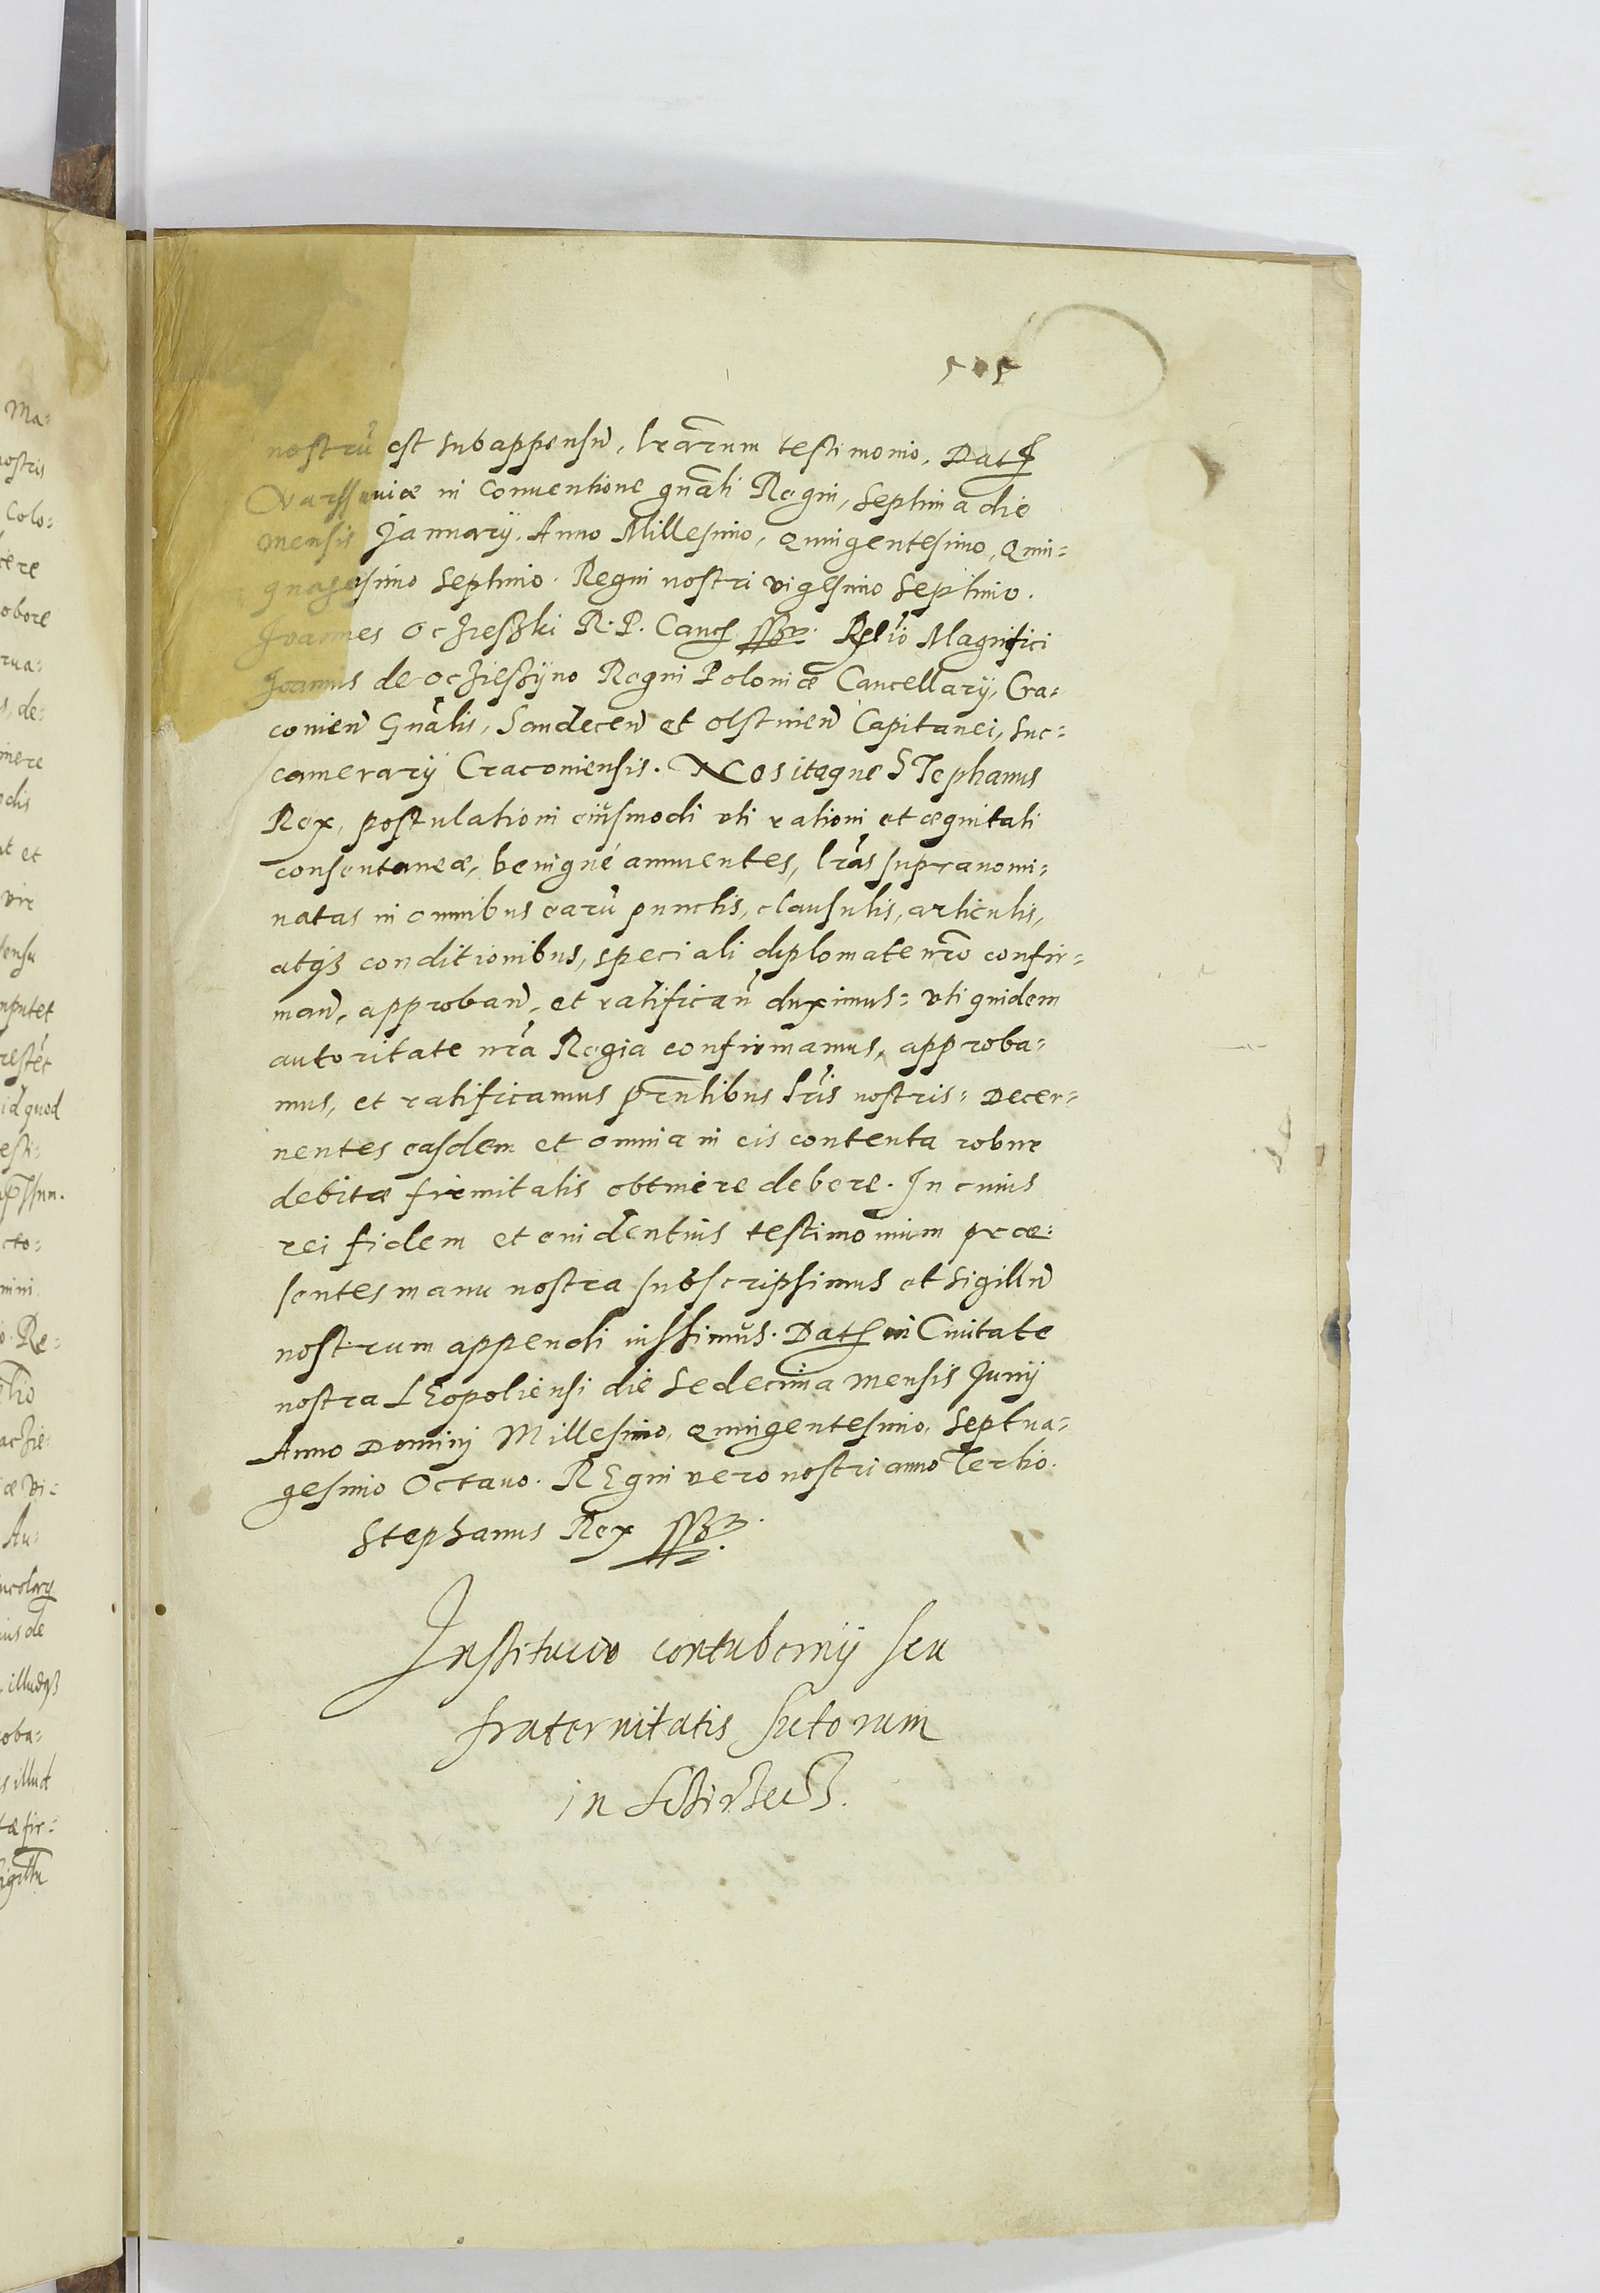 505
nostrũ est subappensũ, lrãrum testimonio, Dat
Varssauiæ in Conuentione gnãli Regni, Septima die
mensis January. Anno Millesimo, Quingentesimo, Quin=
quagesimo Septimo. Regni nostri vigesimo Septimo.
Joannes Oczieszki R. P. Canc sst. Relio Magnifici
Joannis de Oczieszÿno Regni Poloniæ Cancellarÿ, Cra=
couien Gnãlis, Sandecen et Olstinen Capitanei, Suc=
camerarÿ Cracouiensis. Nos itaque STephanus
Rex, postulationi eiusmodi vti rationi et æquitati
consentaneæ, benigné annuentes, lrãs supranomi=
natas in omnibus earũ punctis, clausulis, articulis,
atqz conditionibus, speciali diplomate nrõ confir=
man, approban, et ratifican duximus: vti quidem
autoritate nrã Regia confirmamus, approba=
mus, et ratificamus prntibus lris nostris: Decer=
nentes easdem et omnia in eis contenta robur
debitæ firmitatis obtinere debere. In cuius
rei fidem et euidentius testimonium præ=
sentes manu nostra subscripsimus et Sigillũ
nostrum appendi iussimus. Dat in Ciuitate
nostra LEopoliensi die Sedecima mensis Junij
Anno Dominj Millesimo, Quingentesimo, Septua=
gesimo Octauo. REgni vero nostri anno Tertio.
Stephanus Rex sst.
Institucio contubernij seu
fraternitatis sutorum
in
Ma=
nostris
Colo=
cere
obore
rua=
s, de=
nere
odis
at et
vir
sensu
nputet
restet
id quod
esti=
cto=
mini
o. Re=
æ vi=
Au=
nus de
illudqz
oba=
s illud
tæ fir=
sigillu